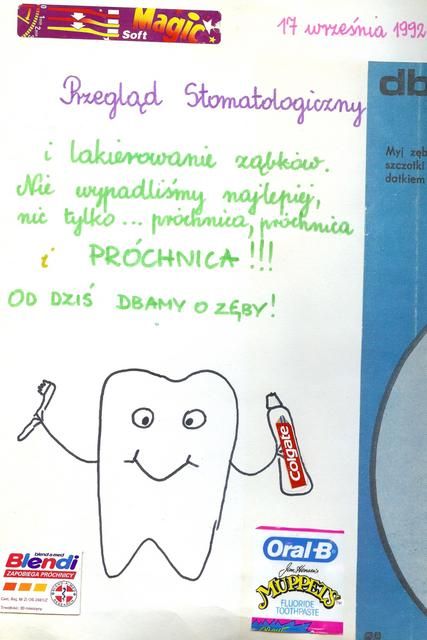 Magic
Soft
17 września 1992
Przegląd Stomatologiczny
i lakierowanie ząbków.
Nie wypadliśmy najlepiej,
nic tylko... próchnica, próchnica
i PRÓCHNICA!!!
OD DZIŚ DBAMY O ZĘBY!
db
Myj zęb
szczotki
datkiem
Colgate
blend-a-med
Blendi
ZAPOBIEGA PRÓCHNICY
Oral-B
Jim Henson's
MUPPETS
FLUORIDE
TOOTHPASTE